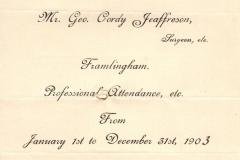 Mr. Geo. Cordy Jeaffreson,
Surgeon, etc.
Framlingham.
Professional Attendance, etc.
From
January 1st to December 31st, 1903